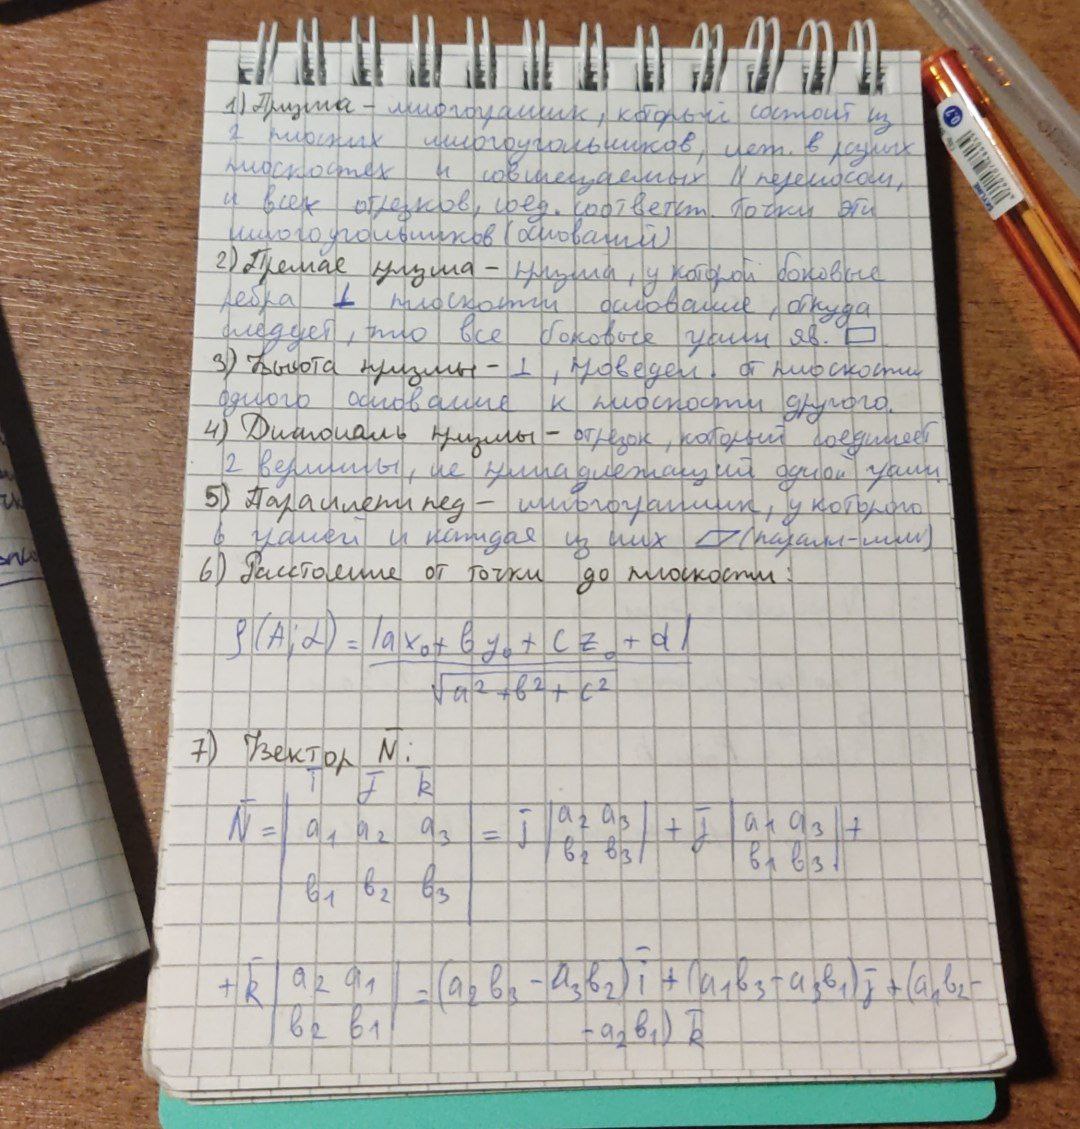 1) Призма – многогранник, который состоит из
2 плоских многоугольников, леж. в разных
плоскостях и совмещаемых || переносом,
и всех отрезков, соед. соответст. точки эти
многоугольников (оснований)
2) Прямая призма – призма, у которой боковые
ребра ⊥ плоскости основание, откуда
следует, что все боковые грани яв. ▭
3) Высота призмы – ⊥, проведен. от плоскости
одного основание к плоскости другого.
4) Диагональ призмы – отрезок, который соединяет
2 вершины, не принадлежащий одной грани
5) Параллепипед – многогранник, у которого
6 граней и каждая из них ▱ (паралл-мм)
6) Расстояние от точки до плоскости:
ρ(A; α) = |ax₀ + by₀ + cz₀ + d|
√a² + b² + c²
7) Вектор N̄:
ī j̄ k̄
N̄ = | a₁ a₂ a₃ | = j̄ | a₂ a₃ | + j̄ | a₁ a₃ | +
b₂ b₃ b₁ b₃
b₁ b₂ b₃
+ k̄ | a₂ a₁ | = (a₂b₃ – a₃b₂) ī + (a₁b₃ – a₃b₁) j̄ + (a₁b₂ –
b₂ b₁ – a₂b₁) k̄
0.7